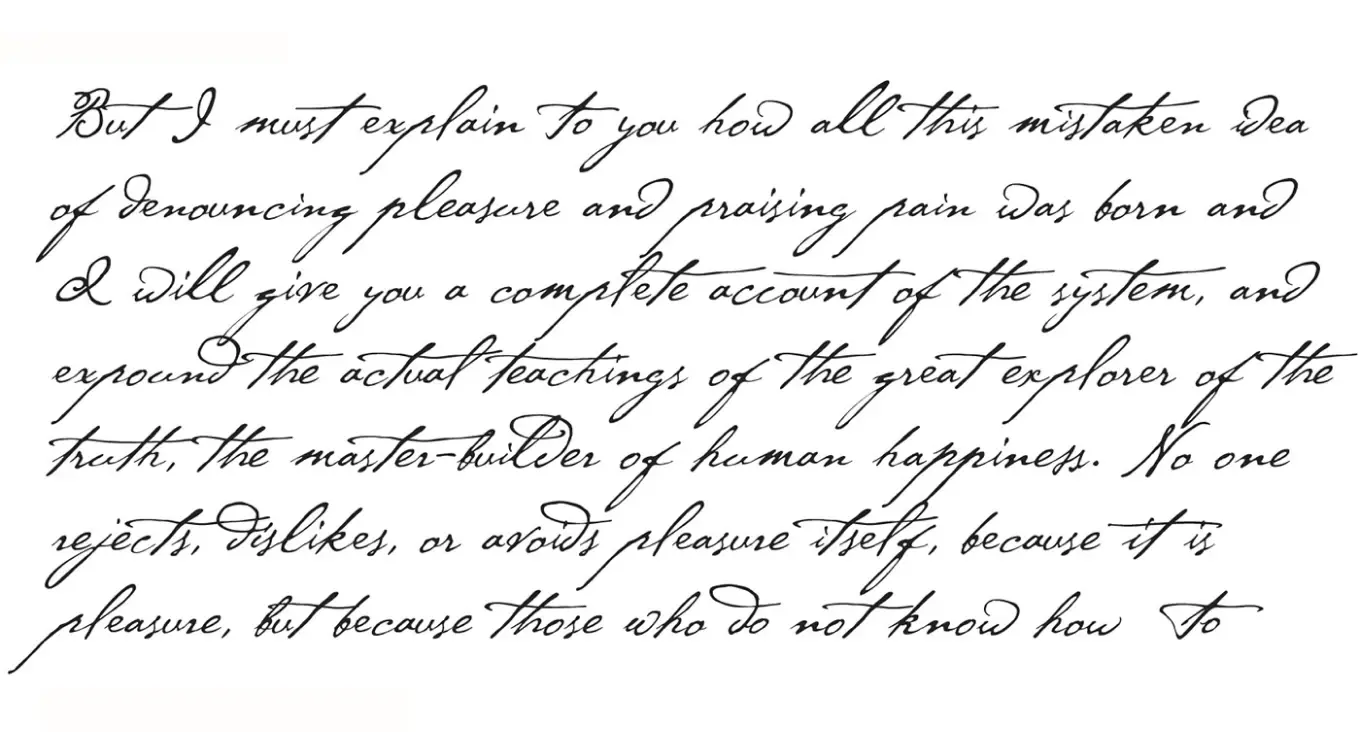 But I must explain to you how all this mistaken idea
of denouncing pleasure and praising pain was born and
I will give you a complete account of the system, and
expound the actual teachings of the great explorer of the
truth, the master-builder of human happiness. No one
rejects, dislikes, or avoids pleasure itself, because it is
pleasure, but because those who do not know how to